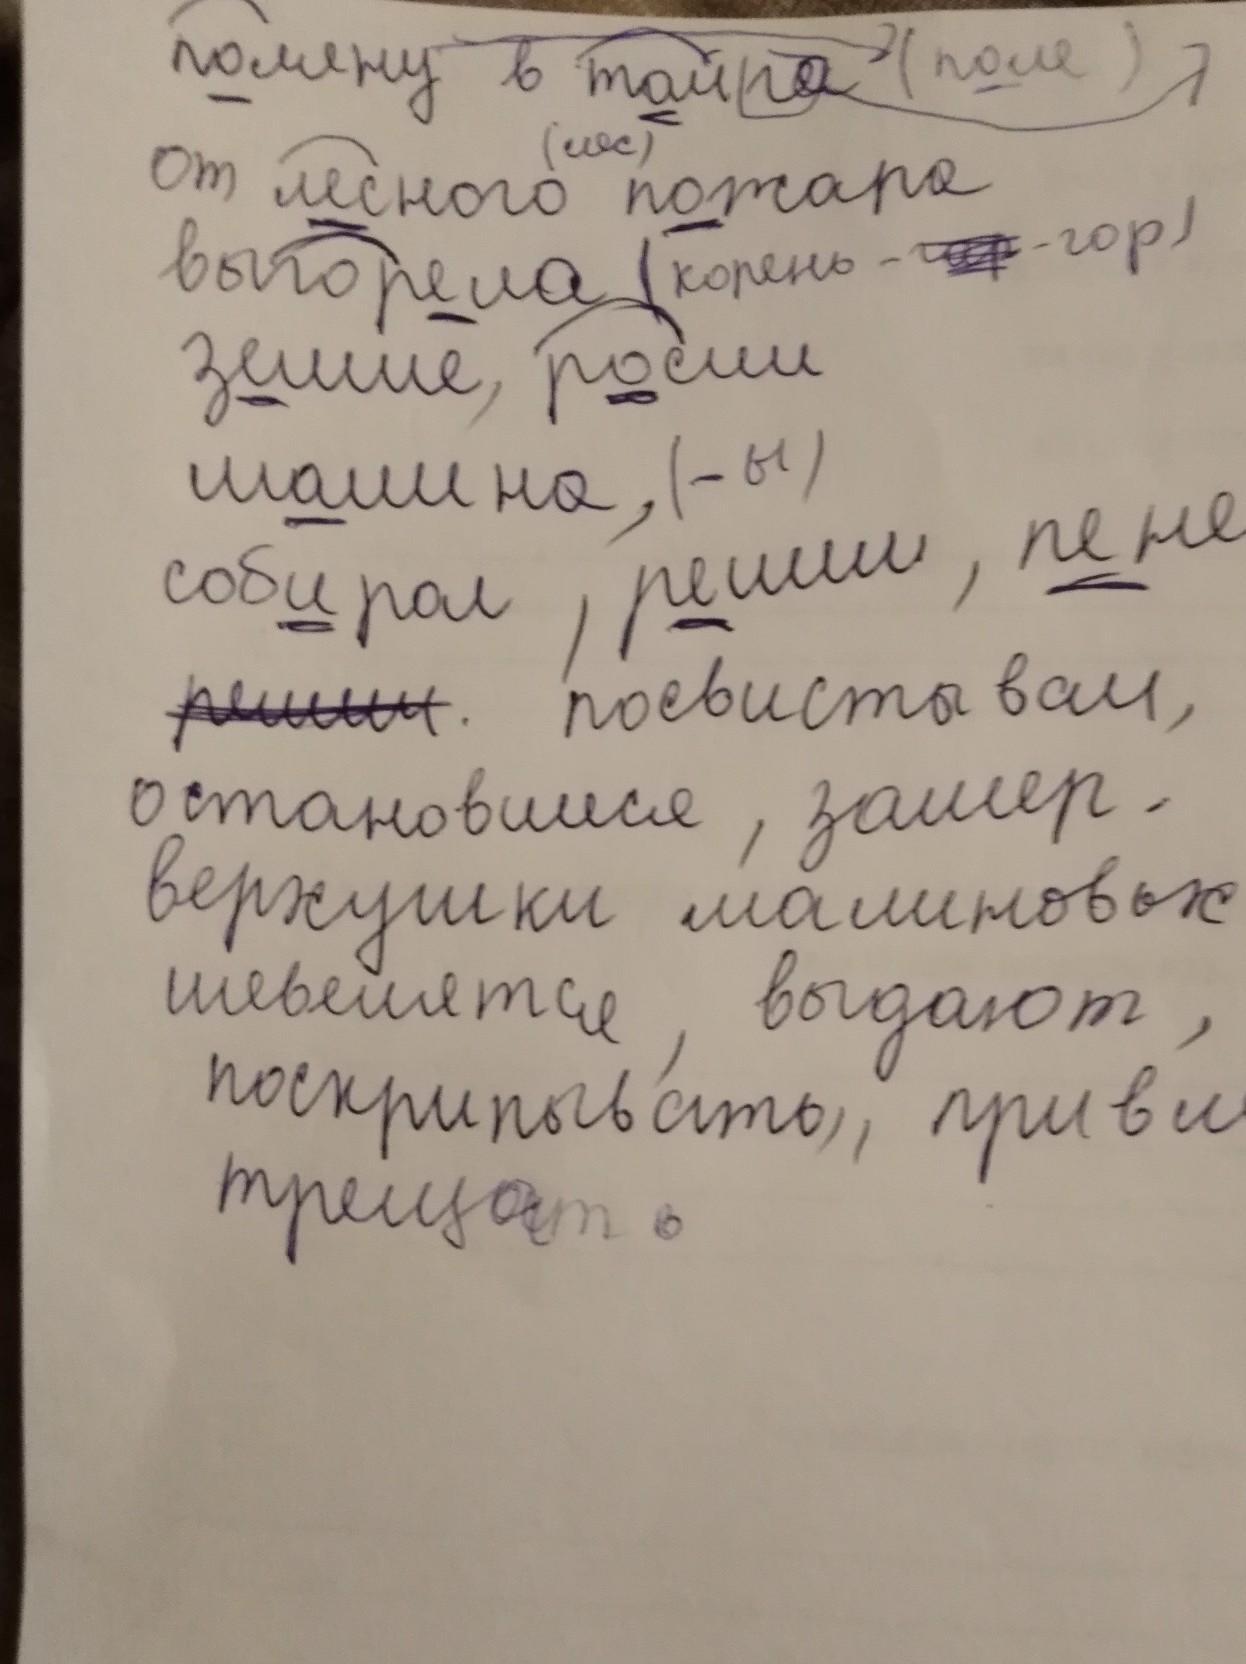 поляну в тайга (поле)
от лесного (лес) пожара
выгорела (корень - гор)
земле, росли
малина, (-ы)
собирал, решил, пене
посвистывал,
остановился, замер.
верхушки малиновых
шевелятся, выдают,
поскрипывать, привле
трещать